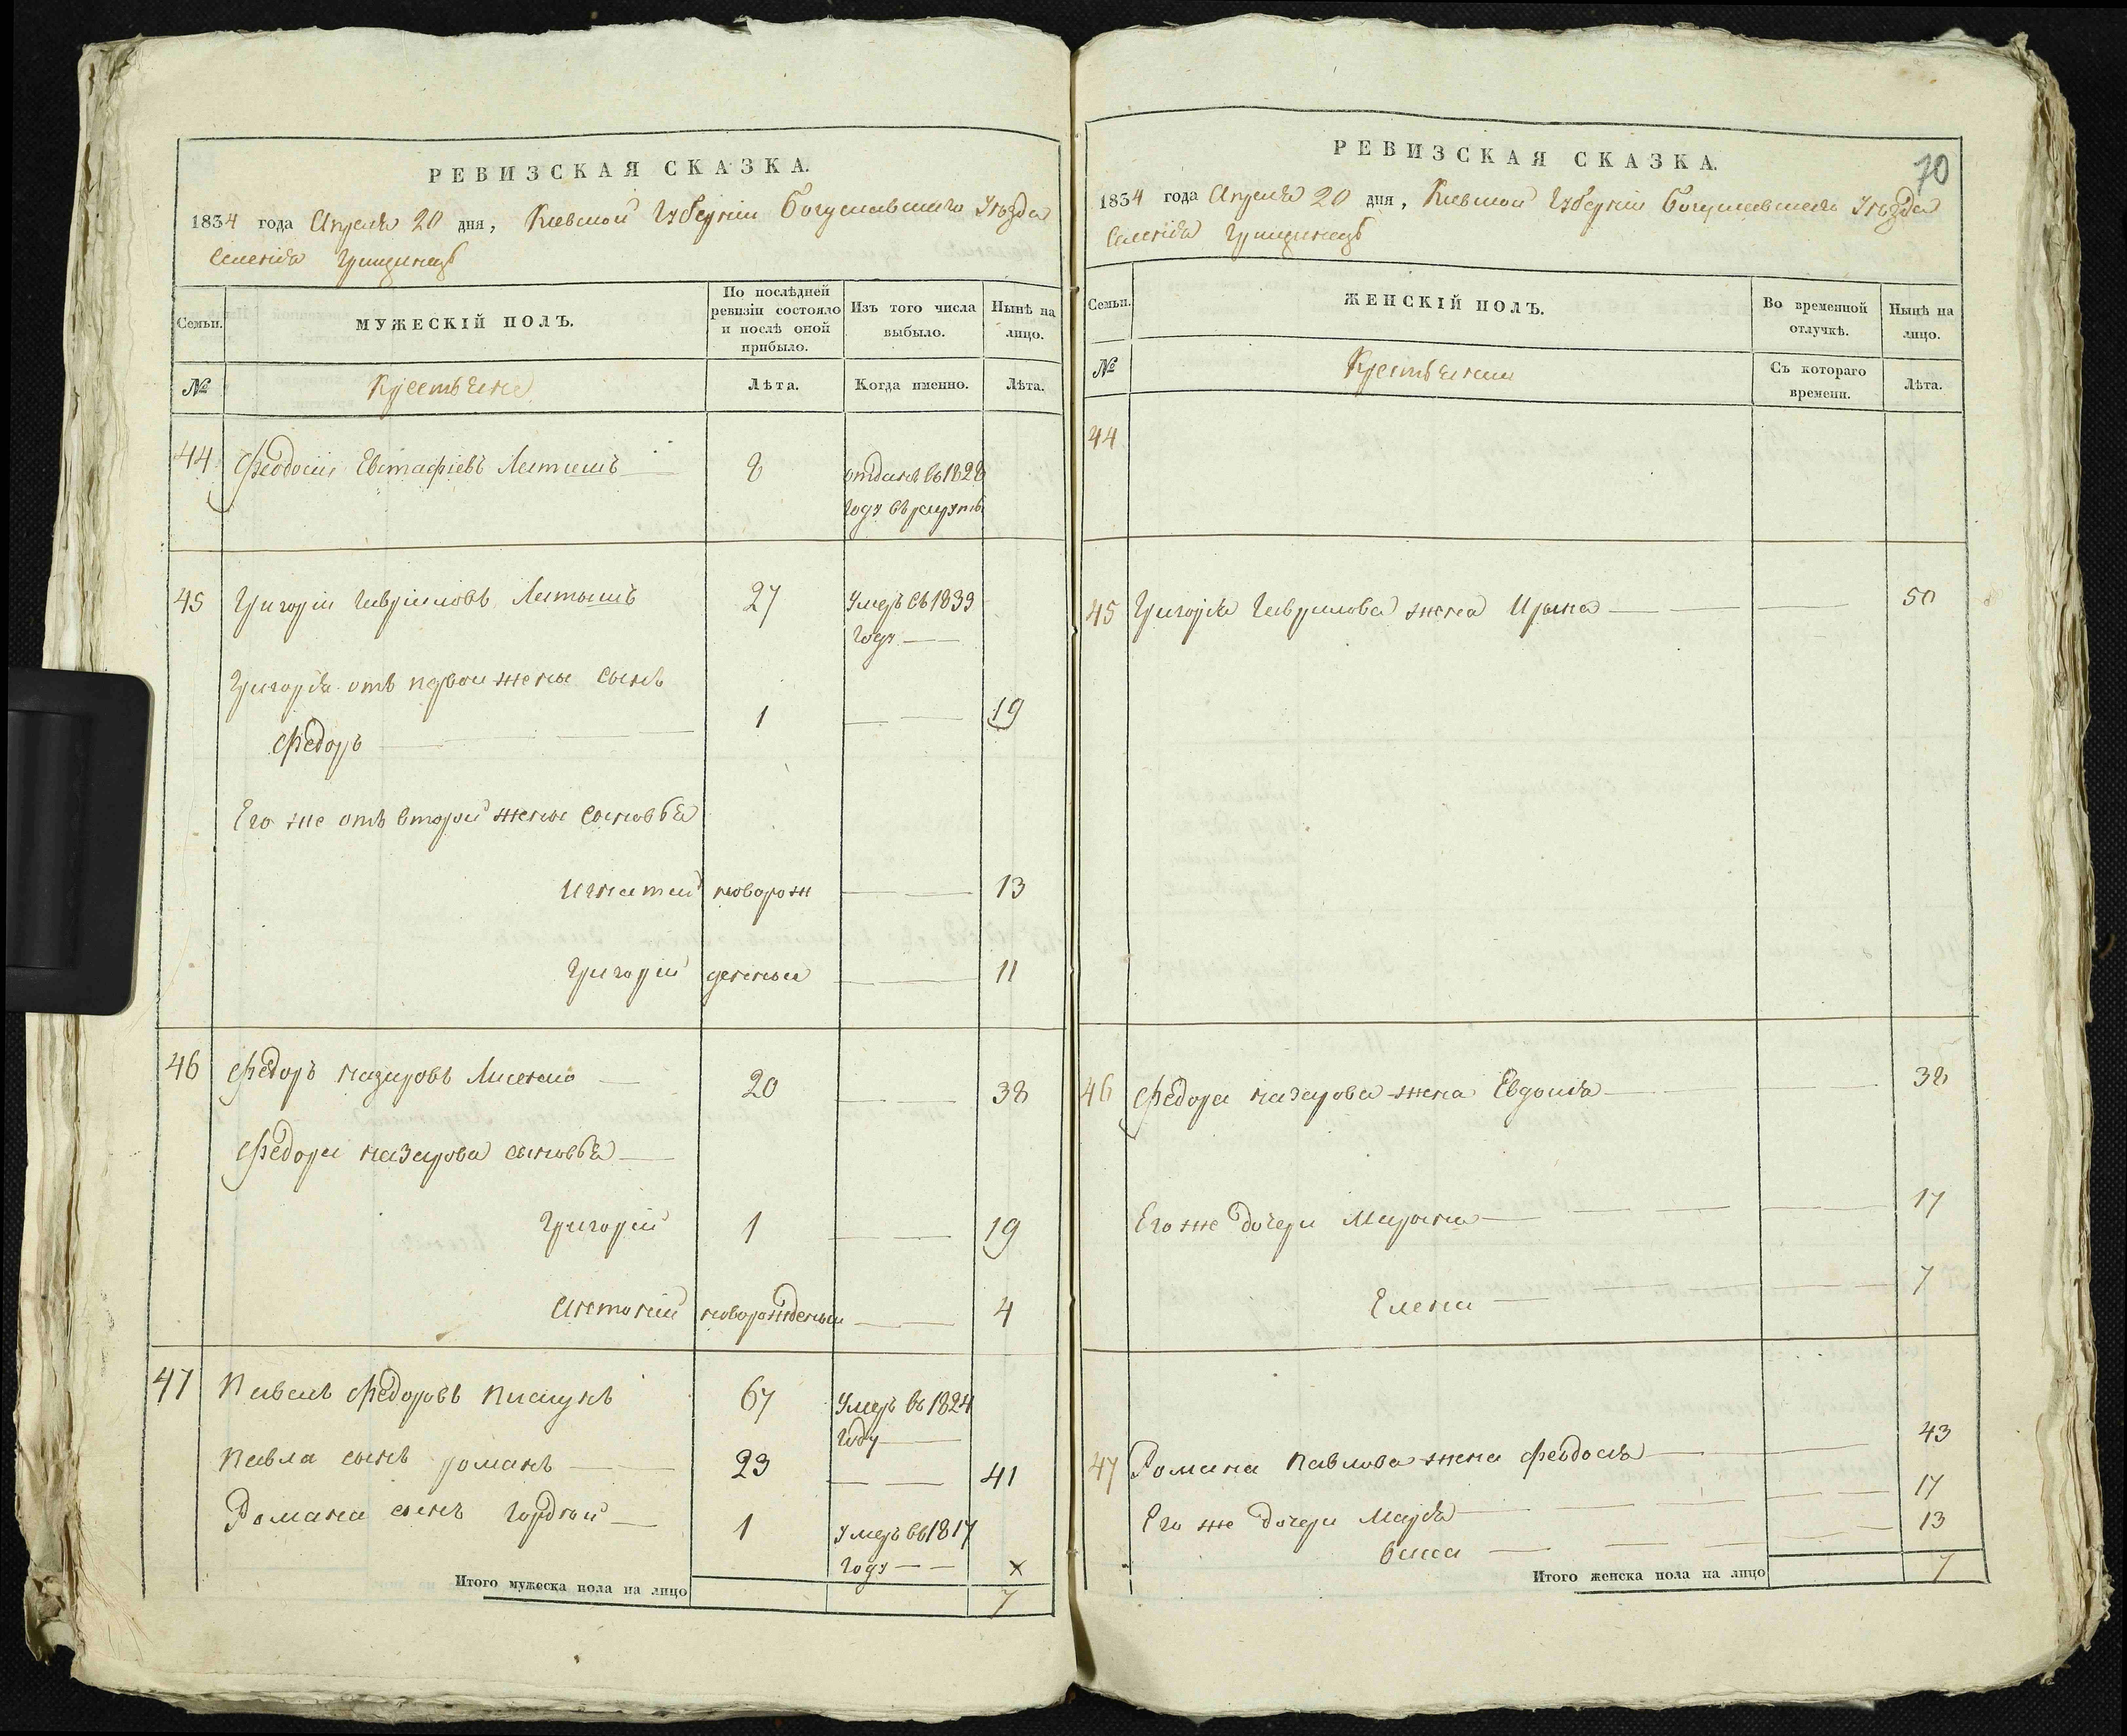 РЕВИЗСКАЯ СКАЗКА.
1834 года Апреля 20 дня, Киевской Губернии Богуславского Уезда
Селения Грищинец
Семьи.
МУЖЕСКІЙ ПОЛЪ.
По послѣдней ревизіи состояло и послѣ оной прибыло.
Изъ того числа выбыло.
Нынѣ на лицо.
№
Крестьяне
Лѣта.
Когда именно.
Лѣта.
44 Феодосий Евстафіевъ 8 отданъ въ 1828
году в рекруты
45 Григорій Гавриловъ 27 Умеръ въ 1833
году
Григорія отъ первой жены сынъ
Федоръ 1 19
Его же отъ второй жены сыновья
Игнатий новорож 13
Григорій денныи 11
46 Федоръ Назаровъ Лисенко 20 38
Федора Назарова сыновья
Григорій 1 19
Антоній новорожденыи 4
47 Павелъ Федоровъ Пискунъ 67 Умеръ въ 1824
году
Павла сынъ Романъ 23 41
Романа сынъ Гордѣй 1 Умеръ въ 1817
году ×
Итого мужеска пола на лицо 7
70
РЕВИЗСКАЯ СКАЗКА.
1834 года Апреля 20 дня, Киевской Губернии Богуславского Уезда
Селения Грищинец
Семьи.
ЖЕНСКІЙ ПОЛЪ.
Во временной отлучкѣ.
Нынѣ на лицо.
№
Крестьянки
Съ котораго времени.
Лѣта.
44
45 Григорія Гаврилова жена Ирина 50
46 Федора Назарова жена Евдокия 38
Его же дочери Марына 17
Елена 7
47 Романа Павлова жена Феодосія 43
Его же дочери Марія 17
13
Итого женска пола на лицо 7